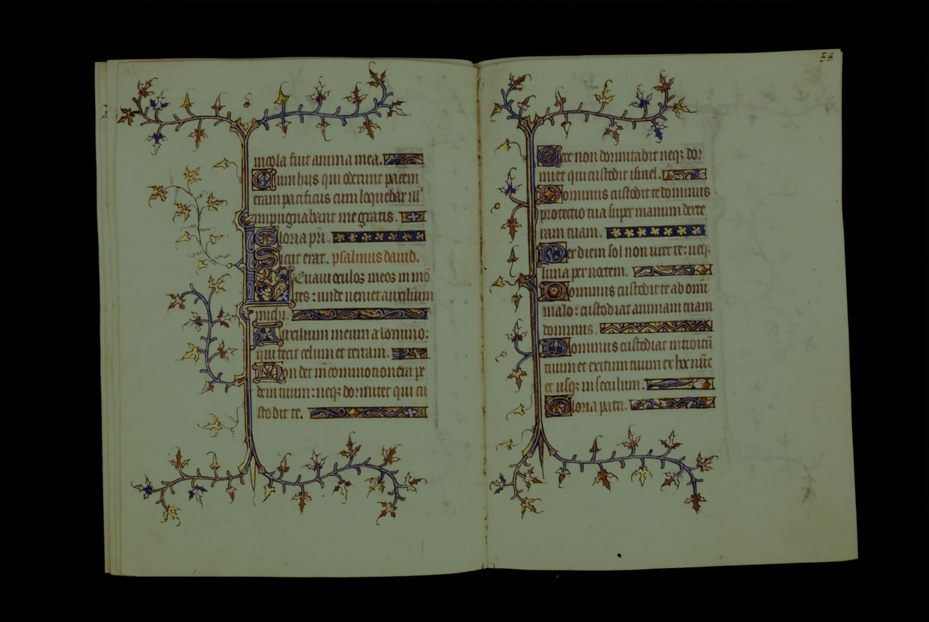 incola fuit anima mea.
Cum hys qui oderunt pacem
eram pacificus cum loquebar ill
impugnabant me gratis.
Gloria pri.
Sicut erat. psalmus dauid.
Leuaui oculos meos in mō
tes: unde ueniet auxilium
michi.
Auxilium meum a domino:
qui fecit celum et terram.
Non det in commotionem pe
dem tuum: neqz dormitet qui cu
stodit te.
56
Ecce non dormitabit neqz dor
miet qui custodit israel.
Dominus custodit te dominus
protectio tua super manum dexte
ram tuam.
Per diem sol non uret te: neqz
luna per noctem.
Dominus custodit te ab omi
malo: custodiat animam tuam
dominus.
Dominus custodiat introitū
tuum et exitum tuum ex hoc nūc
et usqz in seculum.
Gloria patri.